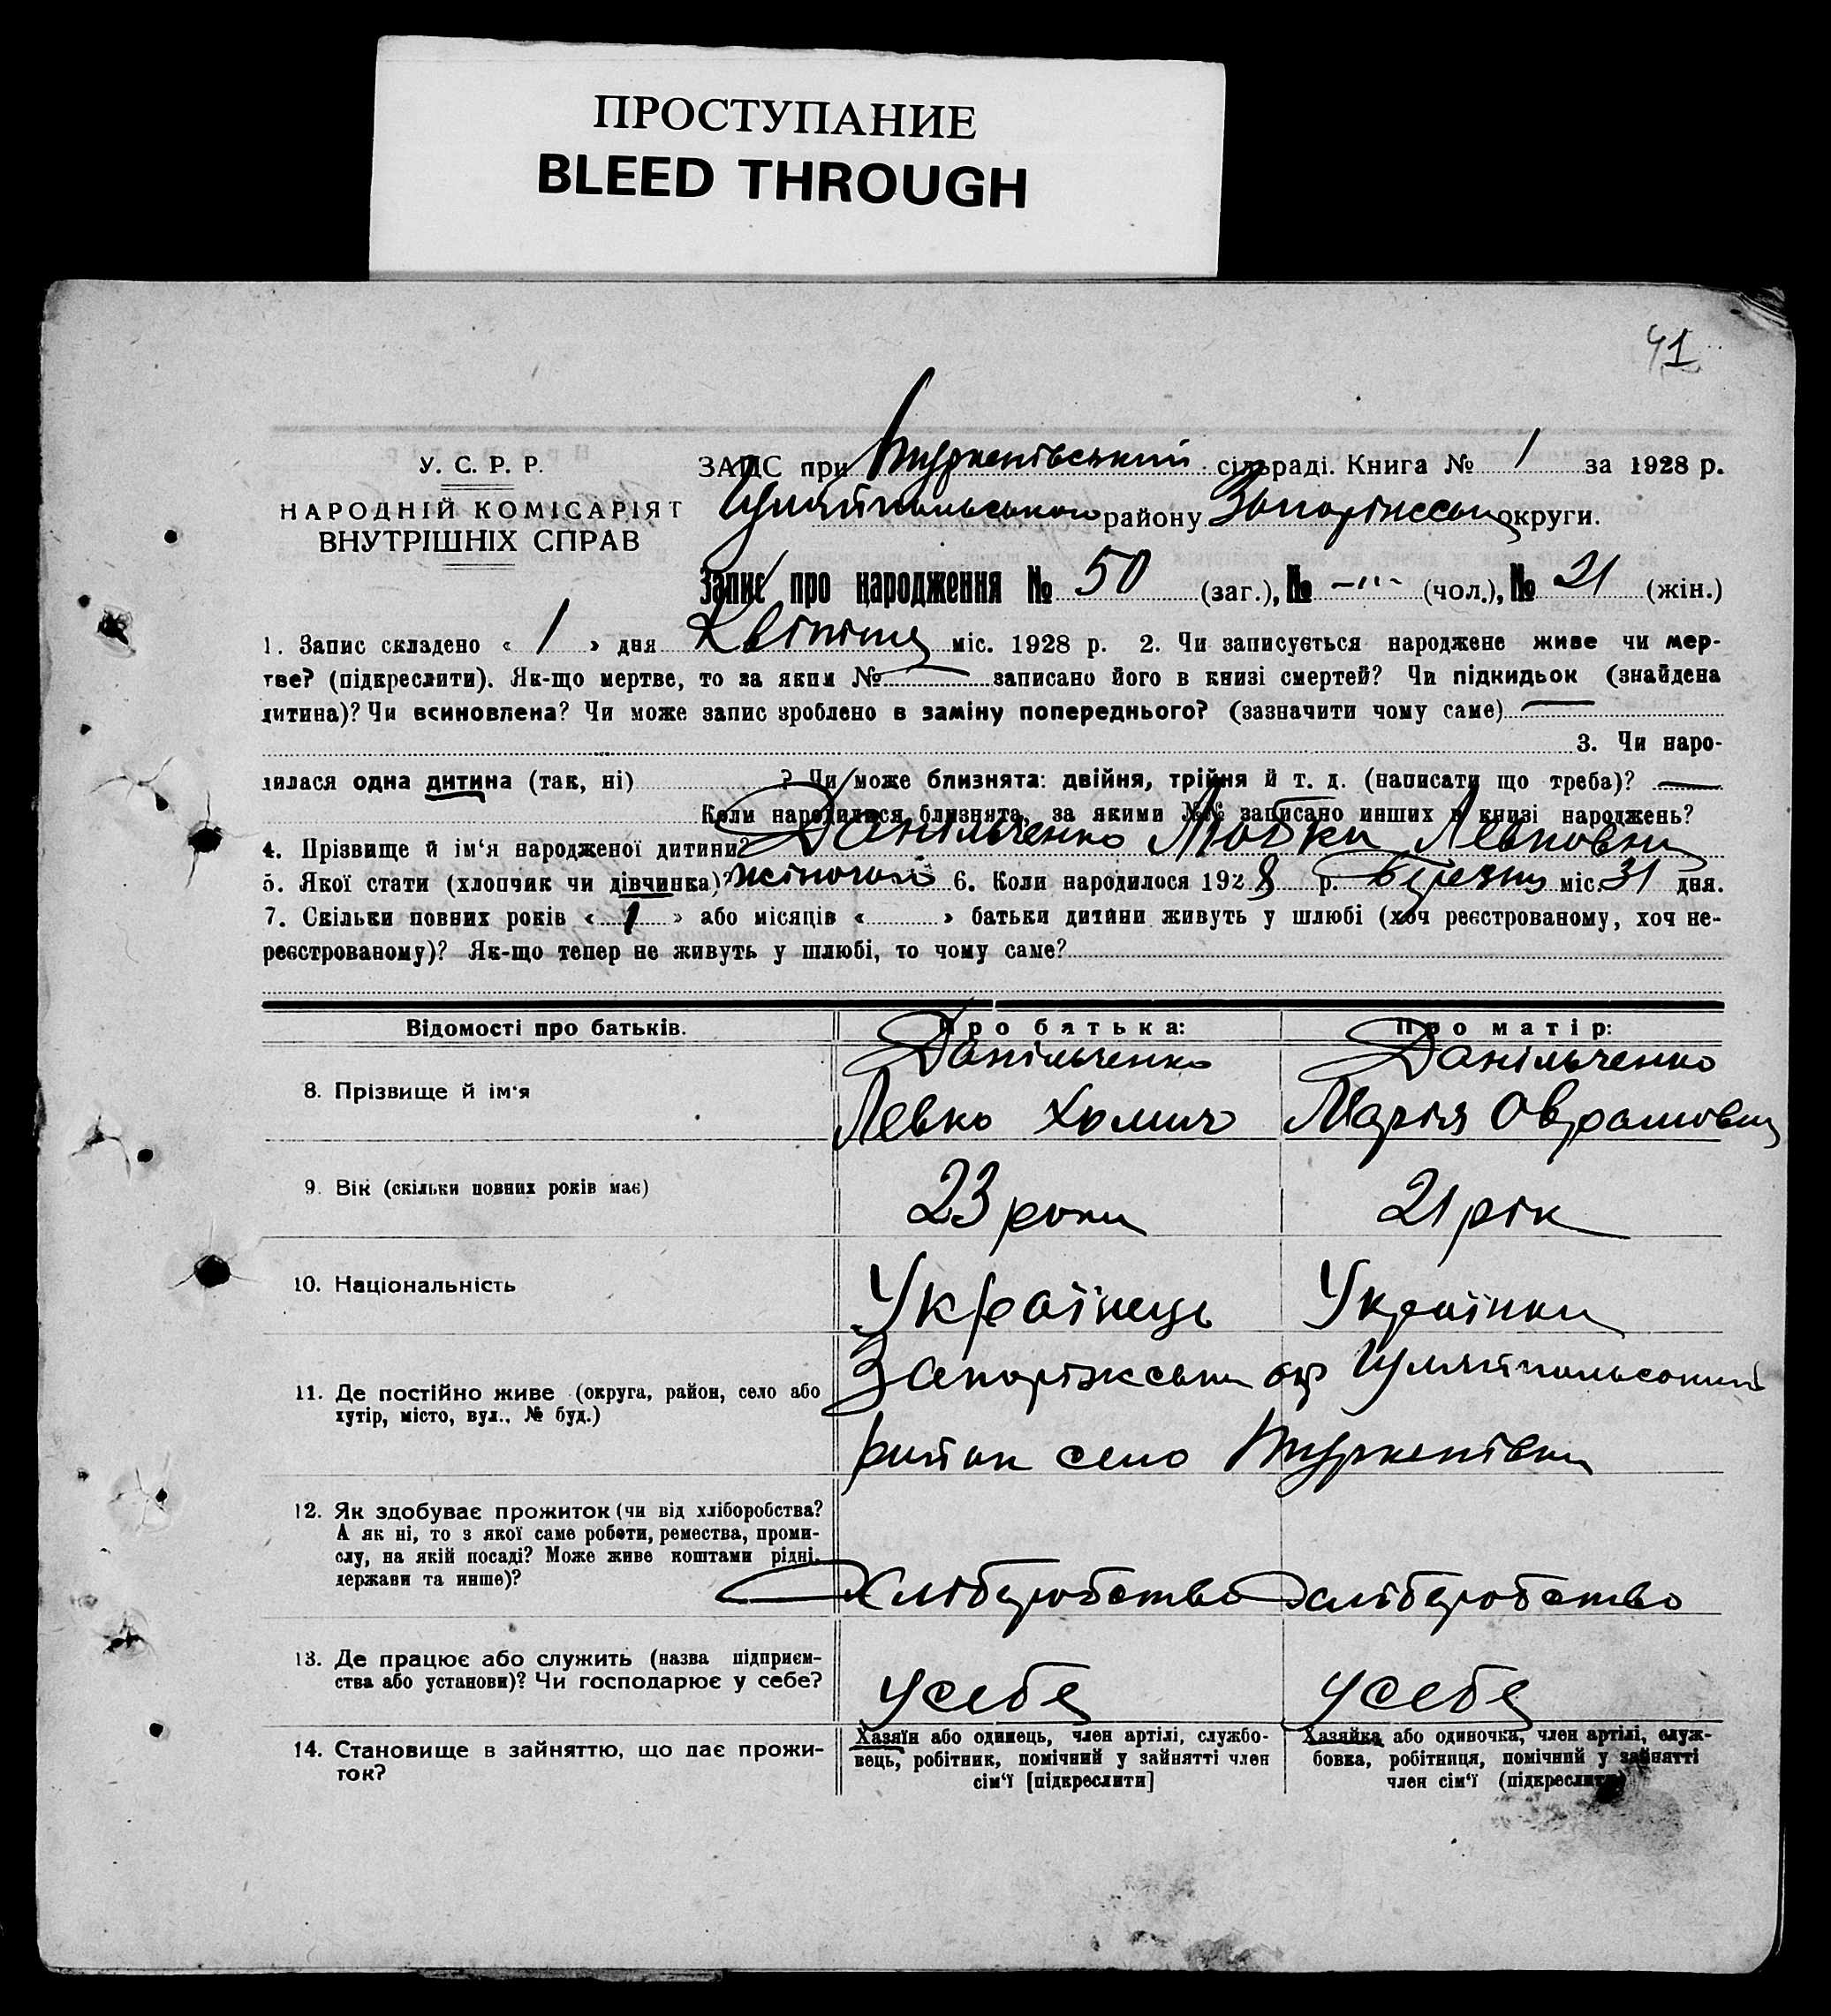 ПРОСТУПАНИЕ
BLEED THROUGH
41
У. С. Р. Р.
НАРОДНІЙ КОМІСАРІЯТ
ВНУТРІШНІХ СПРАВ
ЗАГС при Туркенівський сільраді. Книга № 1 за 1928 р.
Гуляйпольського району Запоріжської округи.
Запис про народження № 50 (заг.), № -"- (чол.), № 21 (жін.)
1. Запис складено « 1 » дня Квітня міс. 1928 р. 2. Чи записується народжене живе чи мер-
тве? (підкреслити). Як-що мертве, то за яким № — записано його в книзі смертей? Чи підкидьок (знайдена
дитина)? Чи всиновлена? Чи може запис зроблено в заміну попереднього? (зазначити чому саме) —
3. Чи наро-
дилася одна дитина (так, ні) ? Чи може близнята: двійня, трійня й т. д. (написати що треба)? —
Коли народилися близнята, за якими №№ записано инших в книзі народжень?
4. Прізвище й ім'я народженої дитини? Данільченко Любка Левковна
5. Якої стати (хлопчик чи дівчинка)? жіночої 6. Коли народилося 1928 р. Березня міс. 31 дня.
7. Скільки повних років « 1 » або місяців « » батьки дитини живуть у шлюбі (хоч реєстрованому, хоч не-
реєстрованому)? Як-що тепер не живуть у шлюбі, то чому саме?
Відомості про батьків. Про батька: Про матір:
8. Прізвище й ім'я Данільченко Левко Хомич Данільченко Марія Оврамовна
9. Вік (скільки повних років має) 23 роки 21 рік
10. Національність Українець Українка
11. Де постійно живе (округа, район, село або
хутір, місто, вул., № буд.)
Запоріжська окр Гуляйпольський
район село Туркенівка
12. Як здобуває прожиток (чи від хліборобства?
А як ні, то з якої саме роботи, ремества, проми-
слу, на якій посаді? Може живе коштами рідні,
держави та инше)?
Хліборобство Хліборобство
13. Де працює або служить (назва підприєм-
ства або установи)? Чи господарює у себе?
усебе усебе
14. Становище в зайняттю, що дає прожи-
ток?
Хазяїн або одинець, член артілі, службо-
вець, робітник, помічний у зайнятті член
сім'ї [підкреслити]
Хазяйка або одиночка, член артілі, служ-
бовка, робітниця, помічний у зайнятті
член сім'ї (підкреслити)